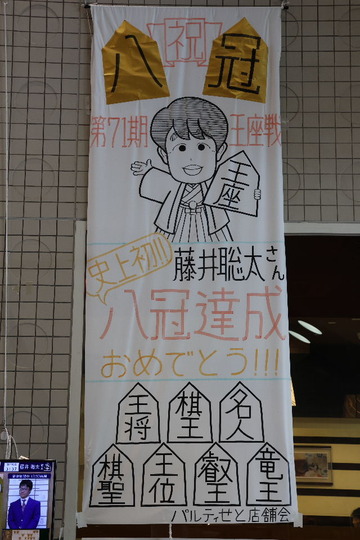 祝
八冠
第71期 王座戦
王座
史上初!!
藤井聡太さん
八冠達成
おめでとう!!!
王将 棋王 名人
棋聖 王位 叡王 竜王
パルティせと店舗会